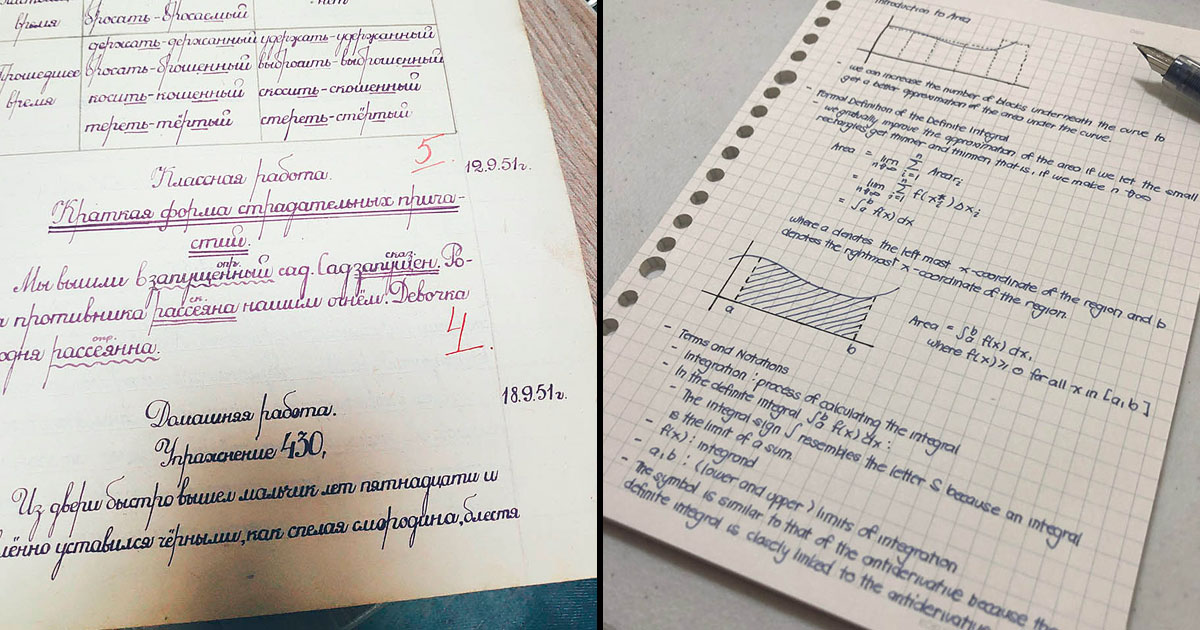 время
бросать-бросаемый
нет
Прошедшее
время
держать-держанный удержать-удержанный
бросать-брошенный выбросить-выброшенный
косить-кошенный скосить-скошенный
тереть-тёртый стереть-стёртый
5
12.9.51г.
Классная работа.
Краткая форма страдательных прича-
стий.
опр. сказ.
Мы вышли в запущенный сад. Сад запущен. Ро-
ск.
противника рассеяна нашим огнём. Девочка
опр.
рассеянна.
4
18.9.51г.
Домашняя работа.
Упражнение 430,
Из двери быстро вышел мальчик лет пятнадцати и
уставился чёрными, как спелая смородина, блестя
Introduction to Area
- we can increase the number of blocks underneath the curve to
get a better approximation of the area under the curve.
- Formal Definition of the Definite Integral
- we gradually improve the approximation of the area if we let the small
rectangles get thinner and thinner, that is, if we make n → ∞
Area = lim n→∞ Σ i=1 n Area i
= lim n→∞ Σ i=1 n f(x i *) Δx i
= ∫ a b f(x) dx
where a denotes the left most x-coordinate of the region and b
denotes the rightmost x-coordinate of the region.
a
b
Area = ∫ a b f(x) dx,
where f(x) ≥ 0 for all x in [a,b]
- Terms and Notations
- Integration : process of calculating the integral
- In the definite integral ∫ a b f(x) dx :
- The integral sign ∫ resembles the letter S because an integral
is the limit of a sum.
- f(x) : integrand
- a, b : (lower and upper) limits of integration
- The symbol is similar to that of the antiderivative because the
definite integral is closely linked to the antiderivative